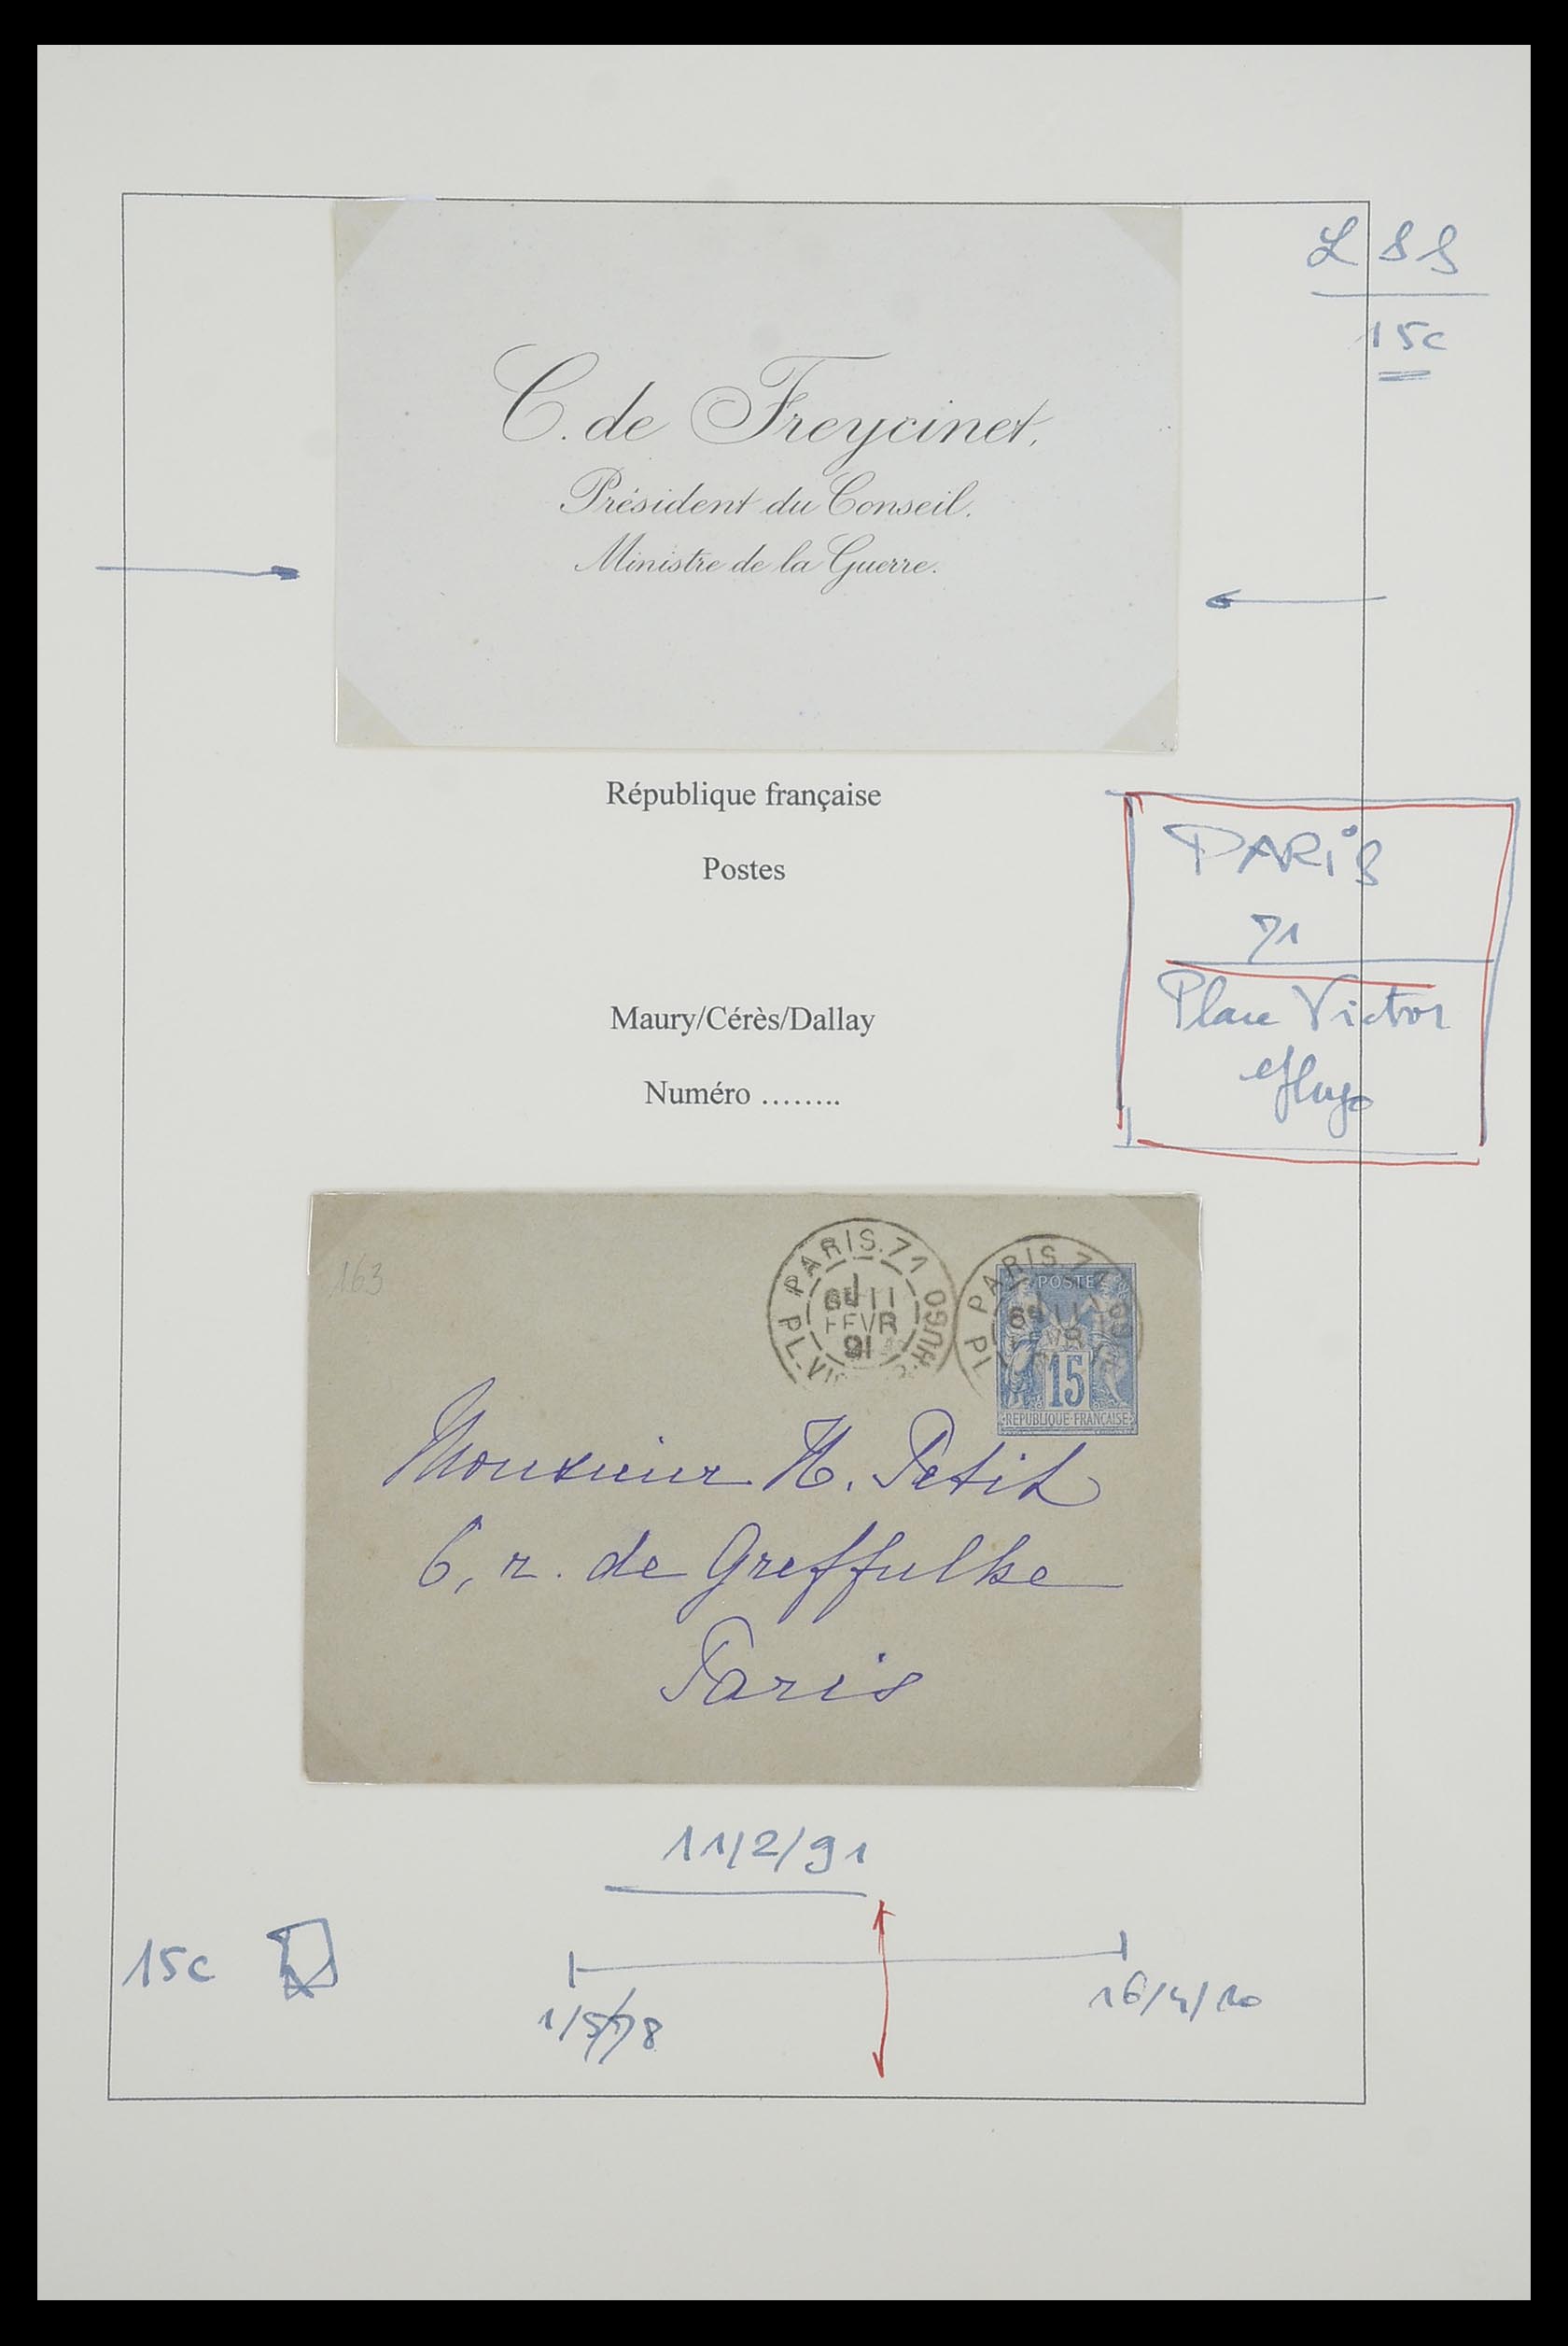 L S S
15c
C. de Freycinet,
Président du Conseil.
Ministre de la Guerre.
République française
Postes
Maury/Cérès/Dallay
Numéro ........
PARiS
71
Place Victor
Hugo
163
PARIS.71
PL. HUGO
11
FEVR
91
PARIS 71
PL
11
POSTES
15
REPUBLIQUE FRANÇAISE
Monsieur H. Petit
6, r. de Greffulhe
Paris
11/2/91
15c
1/5/78
16/4/10